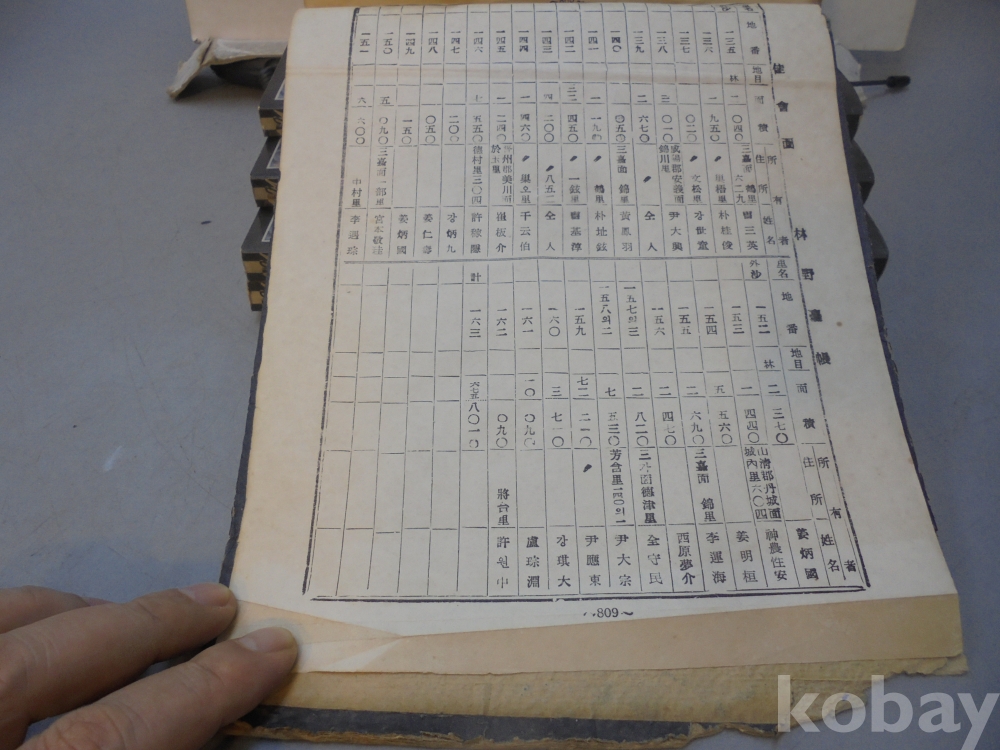 佳會面 林野臺帳
地番 地目 面積 住所 所有者 姓名
一三五 林 二 〇四〇 三嘉面 鶴里 六二九 三英
一三六 一 九五〇 〃 里梧里 朴桂俊
一三七 〇二〇 〃 文松里 강世童
一三八 三 〇一〇 咸陽郡安義面 錦川里 尹大奧
一三九 二 六七〇 〃 仝人
一四〇 〇五〇 三嘉面 錦里 黃鳳羽
一四一 一 一九〇 〃 鶴里 朴址鉉
一四二 三二 四五〇 〃 一鉉里 基淳
一四三 四 二〇〇 〃 八五二 仝人
一四四 一 四六〇 〃 里오里 千云伯
一四五 一 二四〇 州郡美川面 於土里 崔板介
一四六 七 五五〇 德村里三〇四 許
一四七 二〇〇 강炳九
一四八 〇五〇 姜仁壽
一四九 一五〇 姜炳國
一五〇 五 〇九〇 三嘉面一部里 宮本敬
一五一 六 六〇〇 中村里 李週琮
里名 地番 地目 面積 住所 所有者 姓名
外沙 一五二 林 二 三七〇 姜炳國
一五三 一 四四〇 山淸郡丹城面 城內里六〇四 神農性安
一五四 五 五六〇 姜明桓
一五五 二 六九〇 三嘉面 錦里 李運海
一五六 二 四七〇 西原夢介
一五七의三 二 八二〇 德津里 全守民
一五八의二 七 五三〇 芳合里一四〇의一 尹大宗
一五九 七二 二一〇 〃 尹應東
一六〇 三 七一〇 강琪大
一六一 一〇 〇九〇 盧琮淵
一六二 一 〇九〇 將台里 許원中
計 一六三 六七五 八〇一〇
~809~
kobay